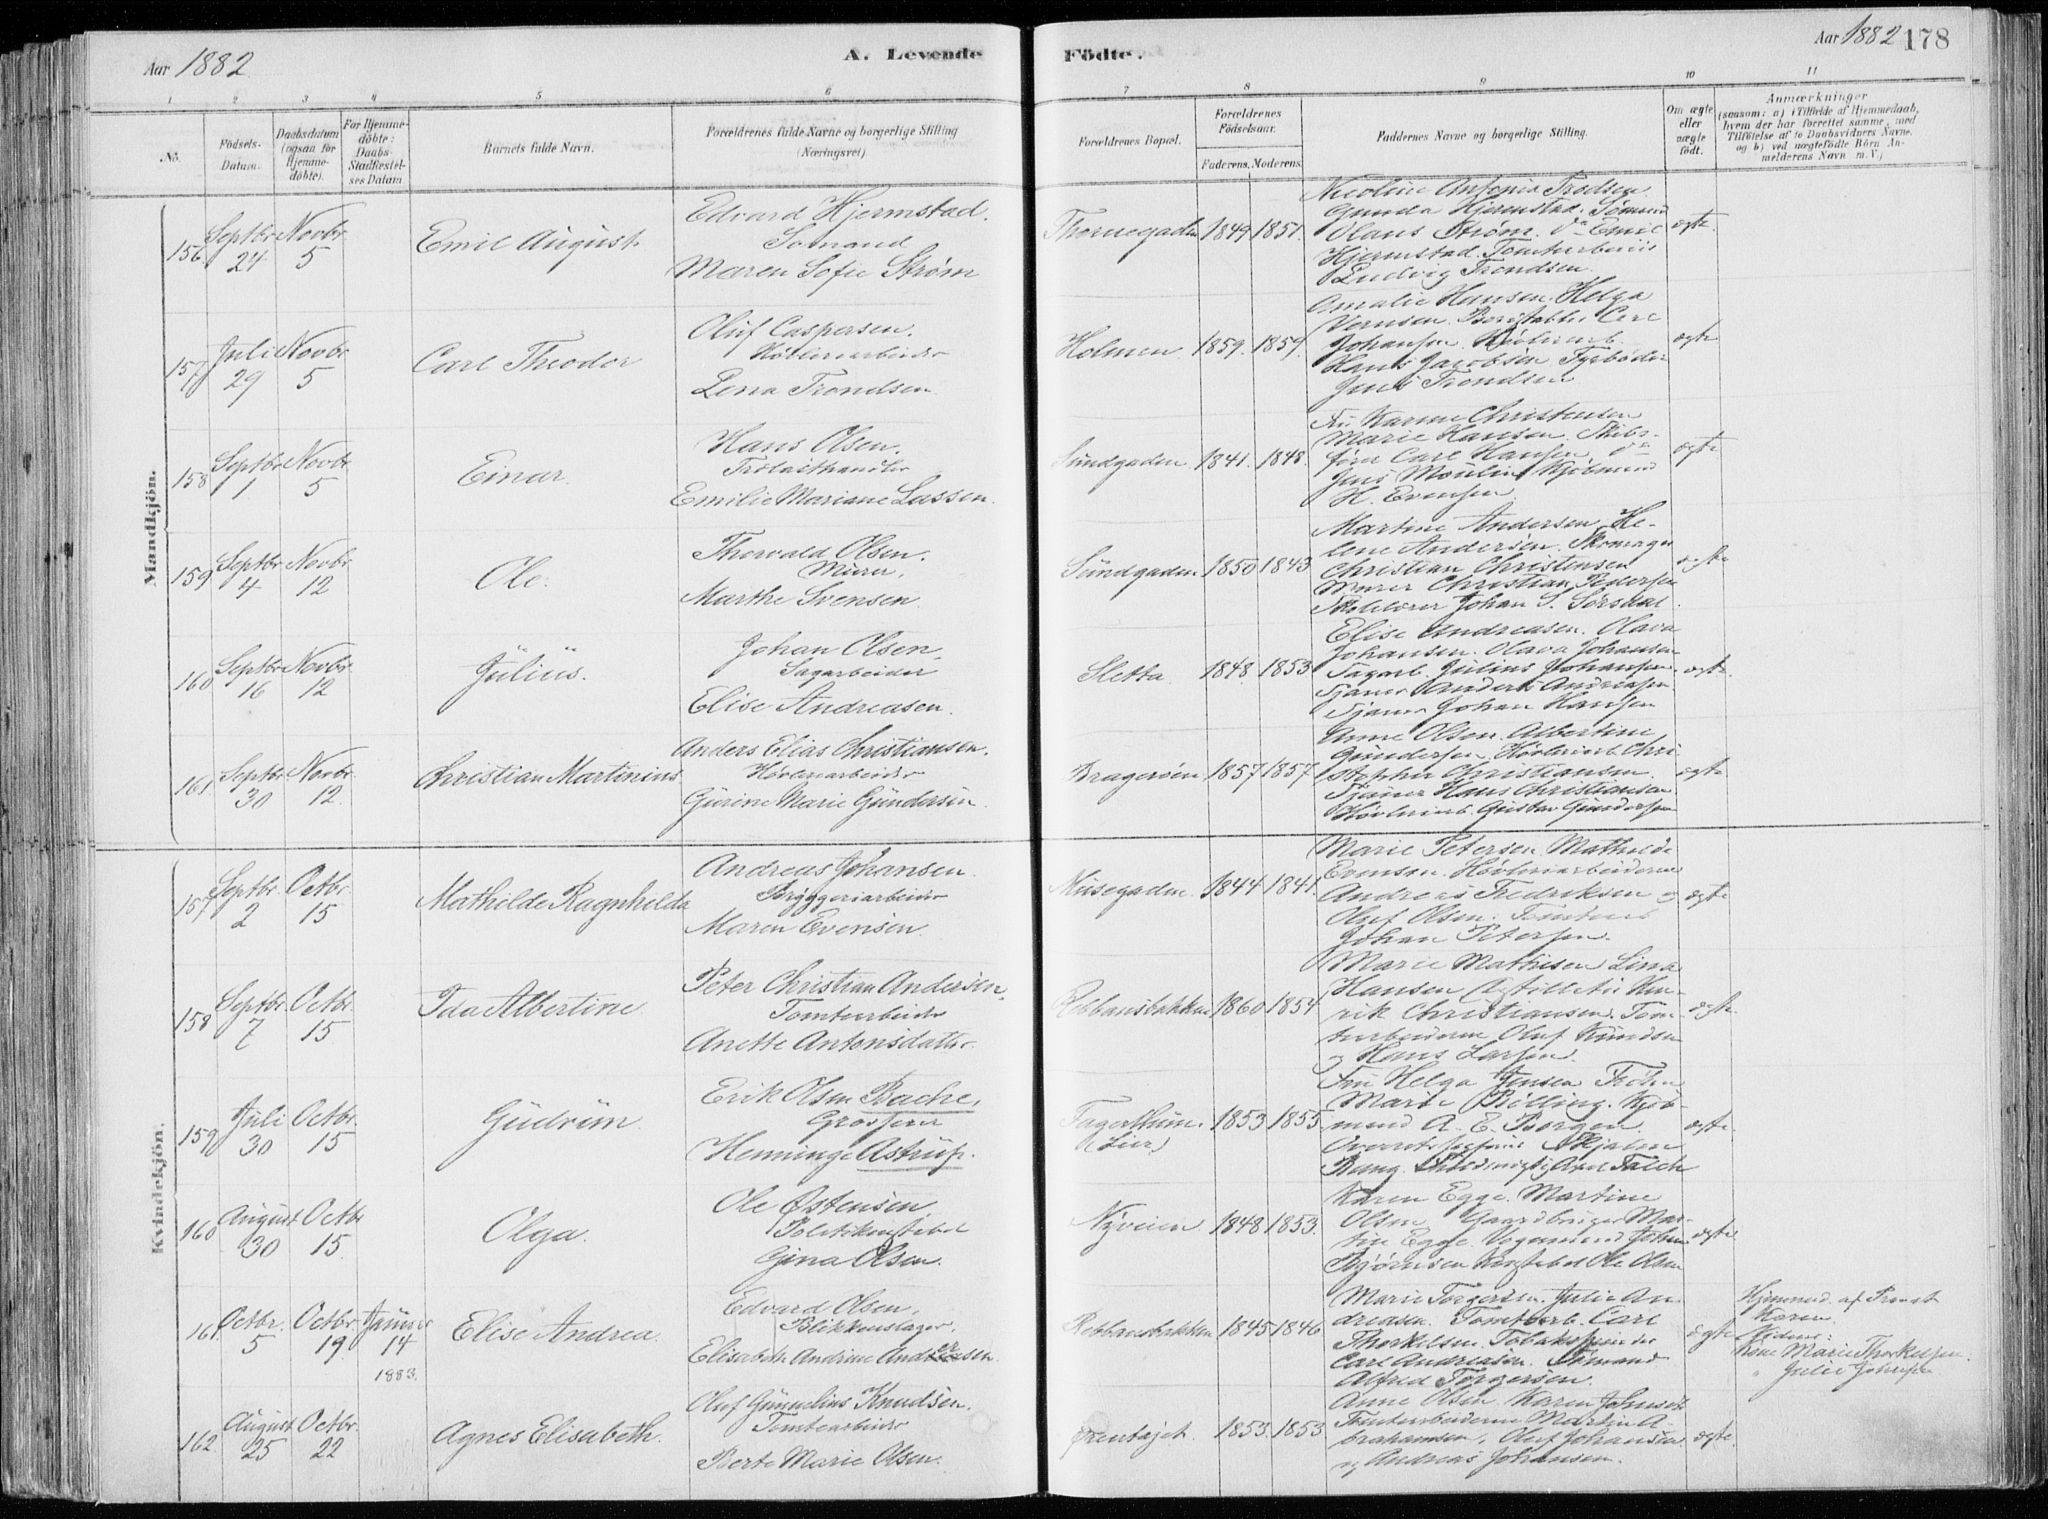 Aar 1882
A. Levende Födte.
Aar 1882
178
1 2 3 4 5 6 7 8 9 10 11
No.
Födsels-Datum.
Daabsdatum (ogsaa for Hjemmedöbte).
For Hjemmedöbte: Daabs-Stadfæstelses Datum
Barnets fulde Navn.
Forældrenes fulde Navne og borgerlige Stilling (Næringsvei)
Forældrenes Bopæl.
Forældrenes Födselsaar.
Faderens. Moderens.
Faddernes Navne og borgerlige Stilling.
Om ægte eller uægte födt.
Anmærkninger
(saasom: a) i Tilfælde af Hjemmedaab, hvem der har forrettet samme, med Tilföielse af to Daabsvidners Navne, og b) ved uægtefödte Börn Anmelderens Navn m. V.)
Mandkjön.
156. Septbr. 24 Novbr. 5
Emil August.
Edvard Hjermstad.
Sømand
Maren Sofie Strøm
Thornegaden 1849 1851.
Nicoline Antonia Trodsen
Gunda Hjermstad. Sømænd
Olaus Strøm. Emil
Hjermstad.
Ludvig Trondsen.
ægte.
157 Juli 29 Novbr. 5
Carl Theodor
Oluf Caspersen.
Høvleriarbeider
Lena Trondsen
Holmen. 1859. 1859.
Amalie Hansen. Helga
Carl
Johansen.
Hans Jacobsen Fyrbøder
Jens Trondsen
ægte
158 Septbr. 1. Novbr. 5
Einar.
Hans Olsen.
Trælasthandler
Emilie Mariane Lassen.
Sundgaden. 1841. 1848.
Fru Karine Christensen
Marie Hansen. Skibs-
fører Carl Hansen
Jens Moulin Kjøbmand
H. Evensen
ægte
159 Septbr. 4 Novbr. 12
Ole.
Thorvald Olsen.
Murer.
Marthe Svensen.
Sundgaden. 1850 1843
Martine Andersen. He-
lene Andersen. Skomager
Christian Christensen
Murer Christian Pedersen
Johan S. Sørsdal.
ægte
160 Septbr. 16 Novbr. 12
Julius.
Johan Olsen.
Sagarbeider
Elise Andreasen.
Sletta 1848 1853
Elise Andreasen. Olava
Johansen. Olava Johansen
Sagarb. Julius Johansen.
Tjener Anders Andreasen
Tjener Johan Hansen
ægte.
161 Septbr. 30 Novbr. 12.
Christian Martinius
Anders Elias Christiansen.
Høvleriarbeider
Gurine Marie Gundersen.
Bragerøen 1857 1857
Anne Olsen. Albertine
Gundersen. Høvleriarb. Chri-
stopher Christiansen.
Tjener Hans Christiansen
Høvleriarb. Gustav Gundersen
ægte
Kvindekjön.
157 Septbr. 2 Octbr. 15
Mathilde Ragnhilda
Andreas Johansen.
Bryggeriarbeider
Maren Evensen.
Musegaden. 1844 1841.
Marie Petersen. Mathilde
Evensen. Høvleriarbeiderne
Andreas Fredriksen og
Oluf Olsen.
Johan Petersen.
ægte
158 Septbr. 7 Octbr. 15
Ida Albertine
Peter Christian Andersen.
Tomtearbeider
Anette Antonsdatter.
Rebbansbakken 1860 1854
Marie Mathisen Lina
Hansen Hen-
rik Christiansen. Tom-
tearbeiderne Oluf Knudsen
og Hans Larsen.
ægte
159 Juli 30 Octbr. 15
Gudrun.
Erik Olsen Bache,
Grosserer
Henninge Astrup.
Fagerthun. (Lier) 1853 1855.
Fru Helga Jensen Frøken
Marie Rolling. Kjøb-
mand A. E. Borgen.
Hjalmar
Bang. Axel Falch
ægte.
160 August 30 Octbr. 15.
Olga.
Ole Østensen.
Politikonstabel
Gina Olsen.
Nyveien 1848 1853.
Karen Egge. Martine
Olsen Gaardbruger Mar-
tin Egge. Vognmand Johan
Bjørnsen Konstabel Ole Olsen
ægte
161 Octbr. 5 Octbr. 19. Januar 14 1883.
Elise Andrea.
Edvard Olsen.
Blikkenslager.
Elisabeth Andrine Andersen.
Rebbansbakken 1845 1846
Marie Torgersen. Julie An-
dreasen. Tomtearb. Carl
Thorkelsen.
Carl Andreasen. Sømand
Alfred Torgersen.
ægte
Hjemmed. af Provst
Karen Marie Thorkelsen.
" Julie Johansen
162. August 25 Octbr. 22
Agnes Elisabeth.
Oluf Gunnelius Knudsen.
Tomtearbeider
Berte Marie Olsen.
Ørentøjet. 1853. 1853
Anne Olsen. Karen Johnsen
Tomtearbeiderne Martin A-
brahamsen, Oluf Johansen
og Andreas Johansen.
ægte.